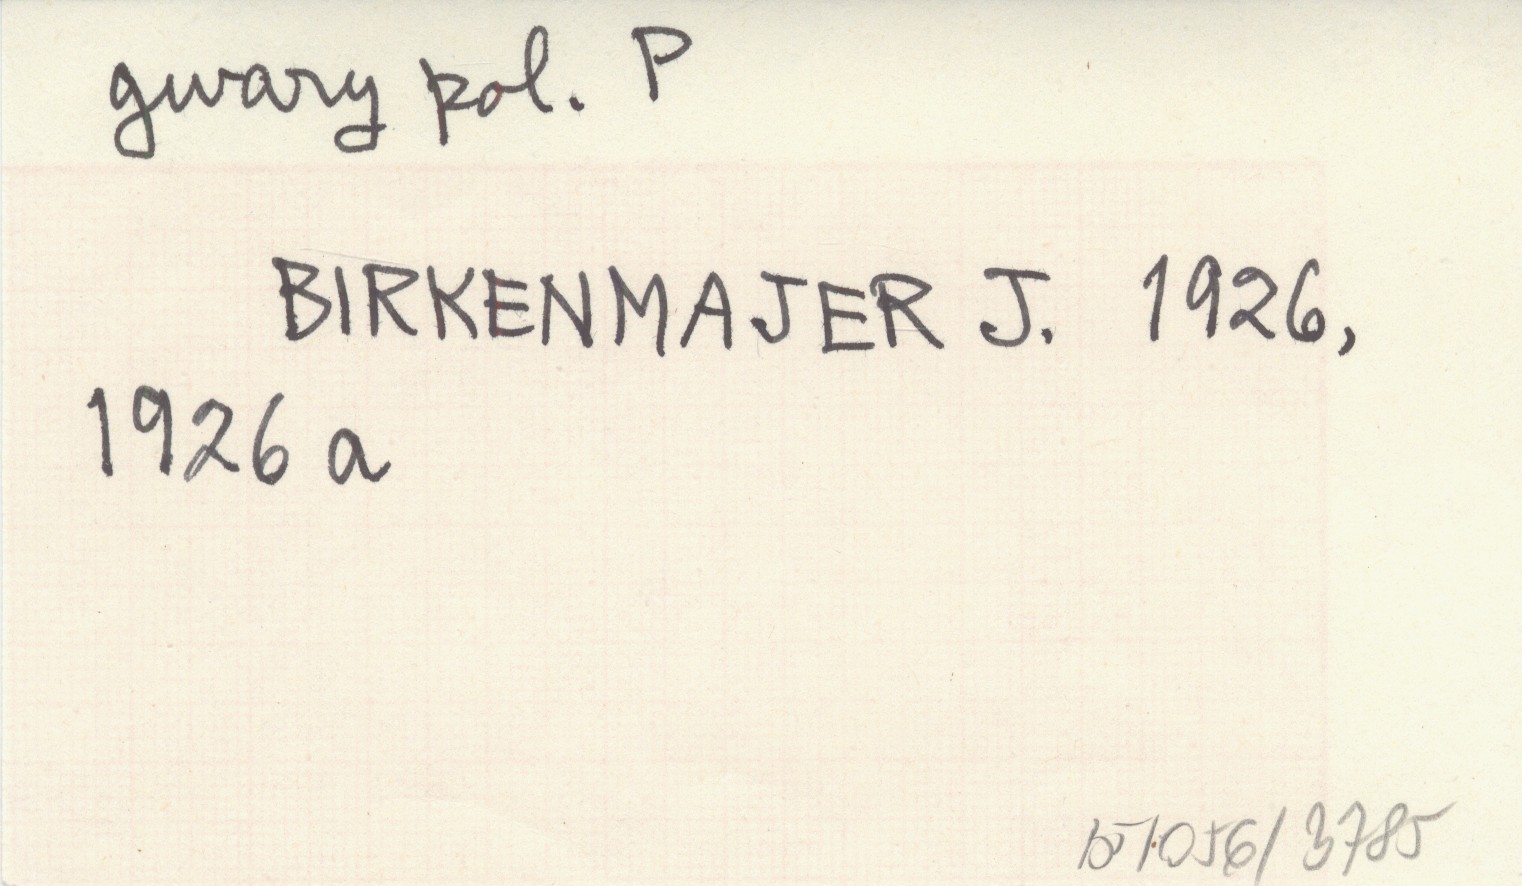 gwary pol. P
BIRKENMAJER J. 1926,
1926 a
/ 3785